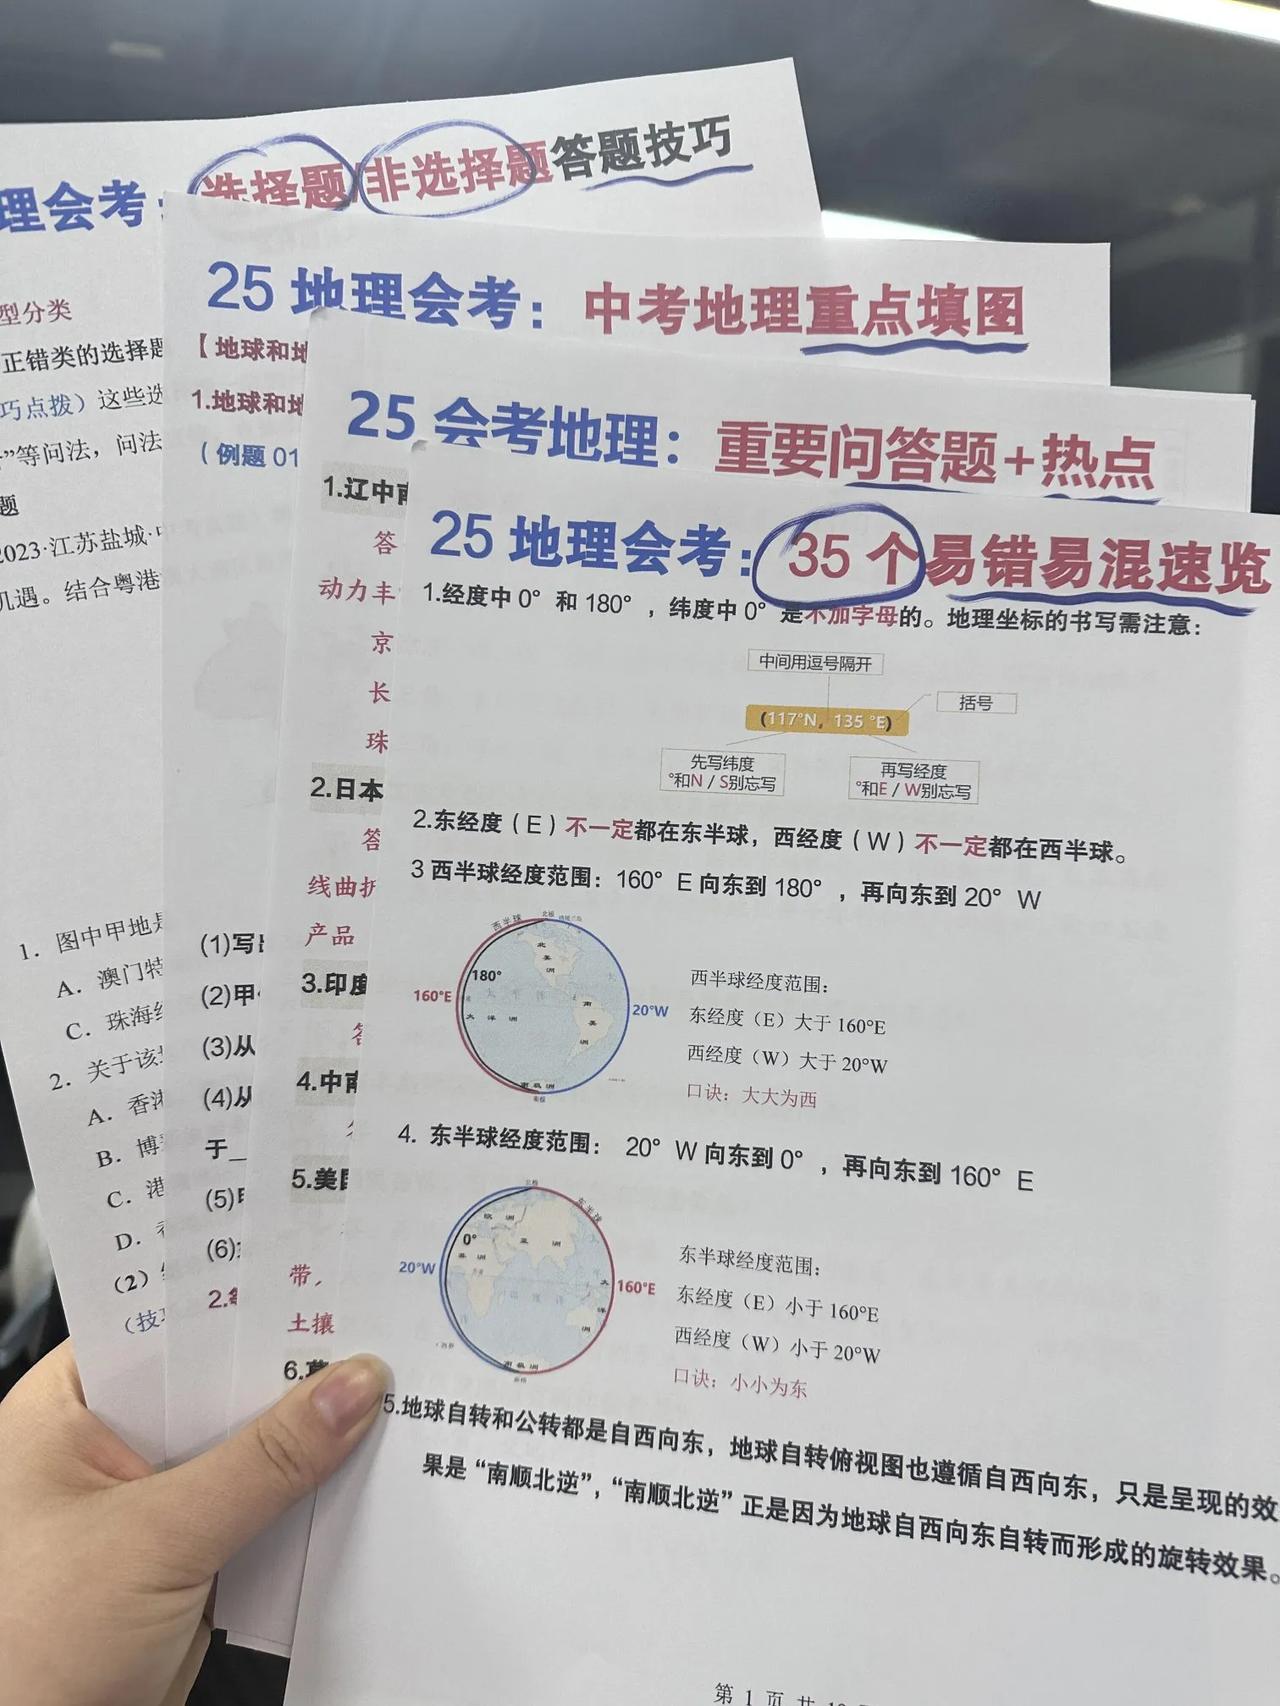 理会考：选择题/非选择题答题技巧
型分类
正错类的选择题
巧点拨）这些选
”等问法，问法
题
2023·江苏盐城·中
机遇。结合粤港
1．图中甲地是
A．澳门特
C．珠海经
2．关于该
A．香港
B．博
C．港
D．
（2）
（技
25 地理会考：中考地理重点填图
【地球和地
1.地球和地
（例题 01
(1)写出
(2)甲
(3)从
(4)从
于_
(5)甲
(6)
2.
25 会考地理：重要问答题+热点
1.辽中南
答
动力丰
京
长
珠
2.日本
答
线曲折
产品
3.印度
答
4.中南
5.美国
带，
土壤
6.
25 地理会考：35 个易错易混速览
1.经度中 0° 和 180° ，纬度中 0° 是不加字母的。地理坐标的书写需注意：
中间用逗号隔开
括号
(117°N，135 °E)
先写纬度
°和N / S别忘写
再写经度
°和E / W别忘写
2.东经度（E）不一定都在东半球，西经度（W）不一定都在西半球。
3 西半球经度范围：160° E 向东到 180° ，再向东到 20° W
西半球
北极
北美洲
180°
160°E
20°W
太平洋
大洋洲
南美洲
南极洲
南极
西半球经度范围：
东经度（E）大于 160°E
西经度（W）大于 20°W
口诀：大大为西
4. 东半球经度范围： 20° W 向东到 0° ，再向东到 160° E
北极
东半球
欧洲
0°
亚洲
非洲
20°W
160°E
印度洋
大洋洲
南极洲
南极
东半球经度范围：
东经度（E）小于 160°E
西经度（W）小于 20°W
口诀：小小为东
5.地球自转和公转都是自西向东，地球自转俯视图也遵循自西向东，只是呈现的效
果是“南顺北逆”，“南顺北逆”正是因为地球自西向东自转而形成的旋转效果。
第 1 页 共